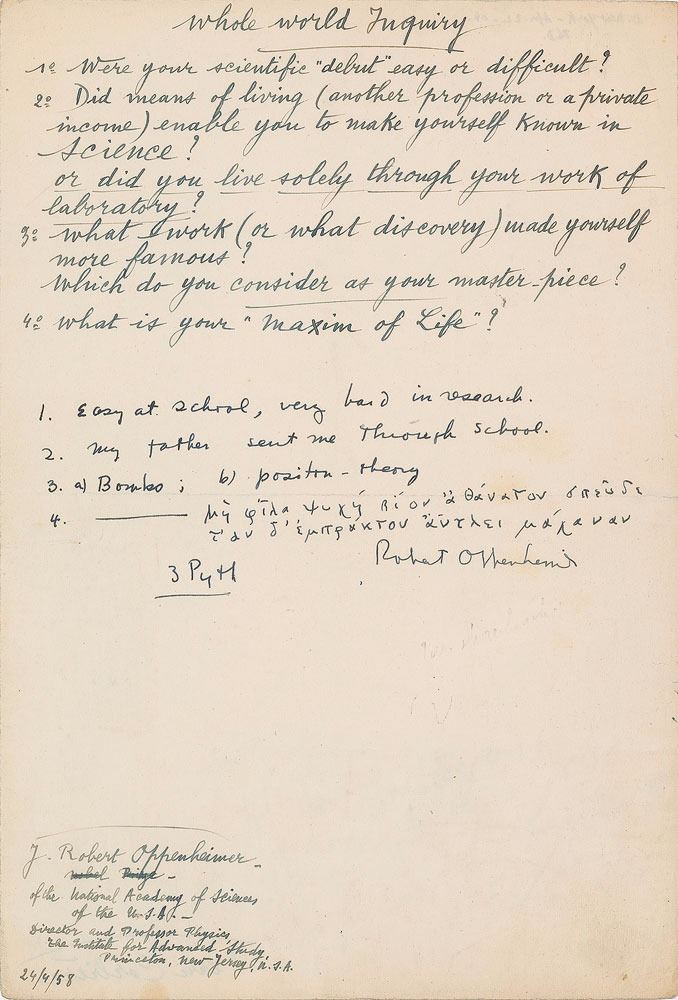 whole world Inquiry
1º Were your scientific "debut" easy or difficult?
2º Did means of living (another profession or a private
income) enable you to make yourself known in
science?
or did you live solely through your work of
laboratory?
3º what work (or what discovery) made yourself
more famous?
Which do you consider as your master-piece?
4º what is your "Maxim of Life"?
1. Easy at school, very hard in research.
2. My father sent me through school.
3. a) Bombs; b) positron-theory
4. ——— Μὴ φίλα ψυχή βίον ἀθάνατον σπεῦδε
τὰν δ' ἔμπρακτον ἄντλει μάχαναν
3 Pyth
Robert Oppenheimer
J. Robert Oppenheimer
nobel Prize -
of the National Academy of Sciences
of the U.S.A. -
Director and Professor Physics
The Institute for Advanced Study
Princeton, New Jersey, U.S.A.
24/4/58